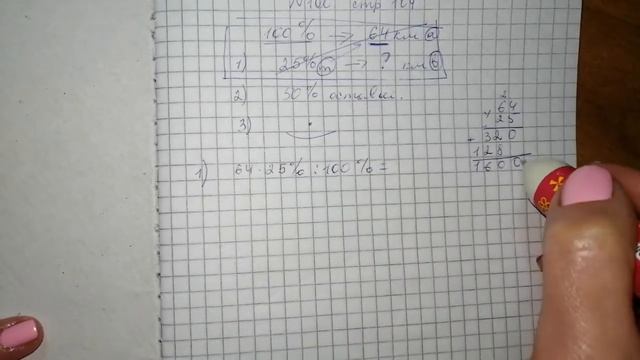 стр 104
100% → 64 км a
1) 25% m → ? км b
2) 50% оставш.
3)
1) 64 · 25% : 100% =
2
64
× 25
320
+ 128
1600